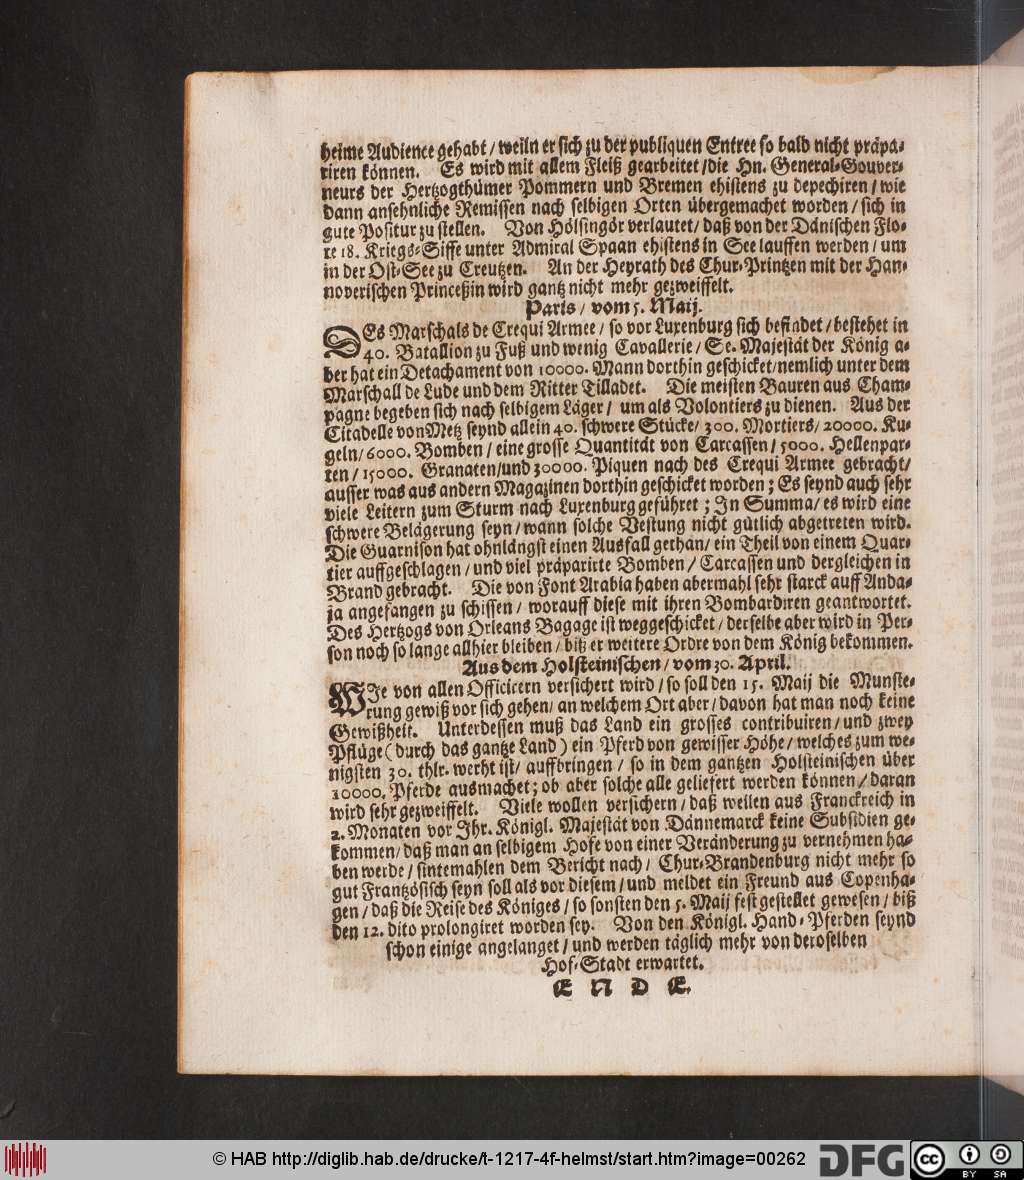 heime Audience gehabt / weiln er sich zu der publiquen Entree so bald nicht präpa-
riren können. Es wird mit allem Fleiß gearbeitet / die Hn. General-Gouver-
neurs der Hertzogthümer Pommern und Bremen ehistens zu depechiren / wie
dann ansehnliche Remissen nach selbigen Orten übergemachet worden / sich in
gute Positur zu stellen. Von Hölsingör verlautet / daß von der Dänischen Flo-
te 18. Kriegs-Siffe unter Admiral Spaan ehistens in See lauffen werden / um
in der Ost-See zu Creutzen. An der Heyrath des Chur-Printzen mit der Han-
noverischen Princeßin wird gantz nicht mehr gezweiffelt.
Paris / vom 5. Maij.
DEs Marschals de Crequi Armee / so vor Luxenburg sich befindet / bestehet in
40. Batallion zu Fuß und wenig Cavallerie / Se. Majestät der König a-
ber hat ein Detachament von 10000. Mann dorthin geschicket / nemlich unter dem
Marschall de Lude und dem Ritter Tilladet. Die meisten Bauren aus Cham-
pagne begeben sich nach selbigem Läger / um als Volontiers zu dienen. Aus der
Citadelle von Metz seynd allein 40. schwere Stücke / 300. Mortiers / 20000. Ku-
geln / 6000. Bomben / eine grosse Quantität von Carcassen / 5000. Hellenpar-
ten / 15000. Granaten / und 30000. Piquen nach des Crequi Armee gebracht /
ausser was aus andern Magazinen dorthin geschicket worden ; Es seynd auch sehr
viele Leitern zum Sturm nach Luxenburg geführet ; In Summa / es wird eine
schwere Belägerung seyn / wann solche Vestung nicht gütlich abgetreten wird.
Die Guarnison hat ohnlängst einen Ausfall gethan / ein Theil von einem Quar-
tier auffgeschlagen / und viel präparirte Bomben / Carcassen und dergleichen in
Brand gebracht. Die von Font Arabia haben abermahl sehr starck auff Anda-
ja angefangen zu schissen / worauff diese mit ihren Bombardiren geantwortet.
Des Hertzogs von Orleans Bagage ist weggeschicket / derselbe aber wird in Per-
son noch so lange allhier bleiben / biß er weitere Ordre von dem König bekommen.
Aus dem Holsteinischen / vom 30. April.
WIe von allen Officicern versichert wird / so soll den 15. Maij die Munste-
rung gewiß vor sich gehen / an welchem Ort aber / davon hat man noch keine
Gewißheit. Unterdessen muß das Land ein grosses contribuiren / und zwey
Pflüge ( durch das gantze Land ) ein Pferd von gewisser Höhe / welches zum we-
nigsten 30. thlr. werht ist / auffbringen / so in dem gantzen Holsteinischen über
10000. Pferde ausmachet ; ob aber solche alle geliefert werden können / daran
wird sehr gezweiffelt. Viele wollen versichern / daß weilen aus Franckreich in
2. Monaten vor Ihr. Königl. Majestät von Dännemarck keine Subsidien ge-
kommen / daß man an selbigem Hofe von einer Veränderung zu vernehmen ha-
ben werde / sintemahlen dem Bericht nach / Chur-Brandenburg nicht mehr so
gut Frantzösisch seyn soll als vor diesem / und meldet ein Freund aus Copenha-
gen / daß die Reise des Königes / so sonsten den 5. Maij fest gestellet gewesen / biß
den 12. dito prolongiret worden sey. Von den Königl. Hand-Pferden seynd
schon einige angelanget / und werden täglich mehr von deroselben
Hof-Stadt erwartet.
E N D E.
© HAB http://diglib.hab.de/drucke/t-1217-4f-helmst/start.htm?image=00262
DFG
cc BY SA